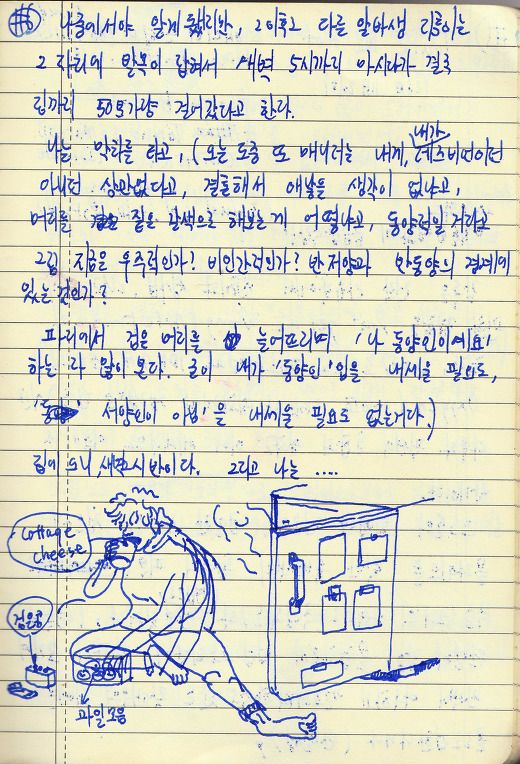 나중에서야 알게 됐지만, 그 이후로 다른 알바생 리틀이는
그 자리에 발목이 잡혀서 새벽 5시까지 마시다가 결국
집까지 50분가량 걸어갔다고 한다.
나는 막차를 타고, (오는 도중 또 매니저는 내게, 내가 레즈비언이던
아니던 상관없다고, 결혼해서 애낳을 생각이 없냐고,
머리를 짙은 갈색으로 해보는게 어떻냐고, 동양적일 거라고
그럼 지금은 우주적인가? 비인간적인가? 반서양과 반동양의 경계에
있는 건인가?
파리에서 검은 머리를 늘어뜨리며 '나 동양인이에요'
하는 자 많이 본다. 굳이 내가 '동양인'임을 내세울 필요도,
'서양인이 아님'을 내세울 필요도 없는거다.)
집에 오니, 새벽 2시 반이다. 그리고 나는 ....
cottage cheese
검은콩
과일모음